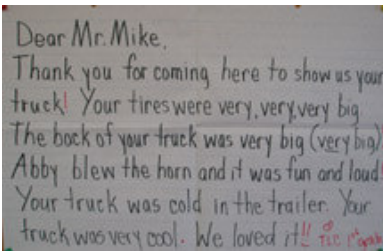 Dear Mr. Mike,
Thank you for coming here to show us your
truck! Your tires were very, very, very big
The back of your truck was very big (very big)
Abby blew the horn and it was fun and loud!
Your truck was cold in the trailer. Your
truck was very cool. We loved it!! TLC 1st